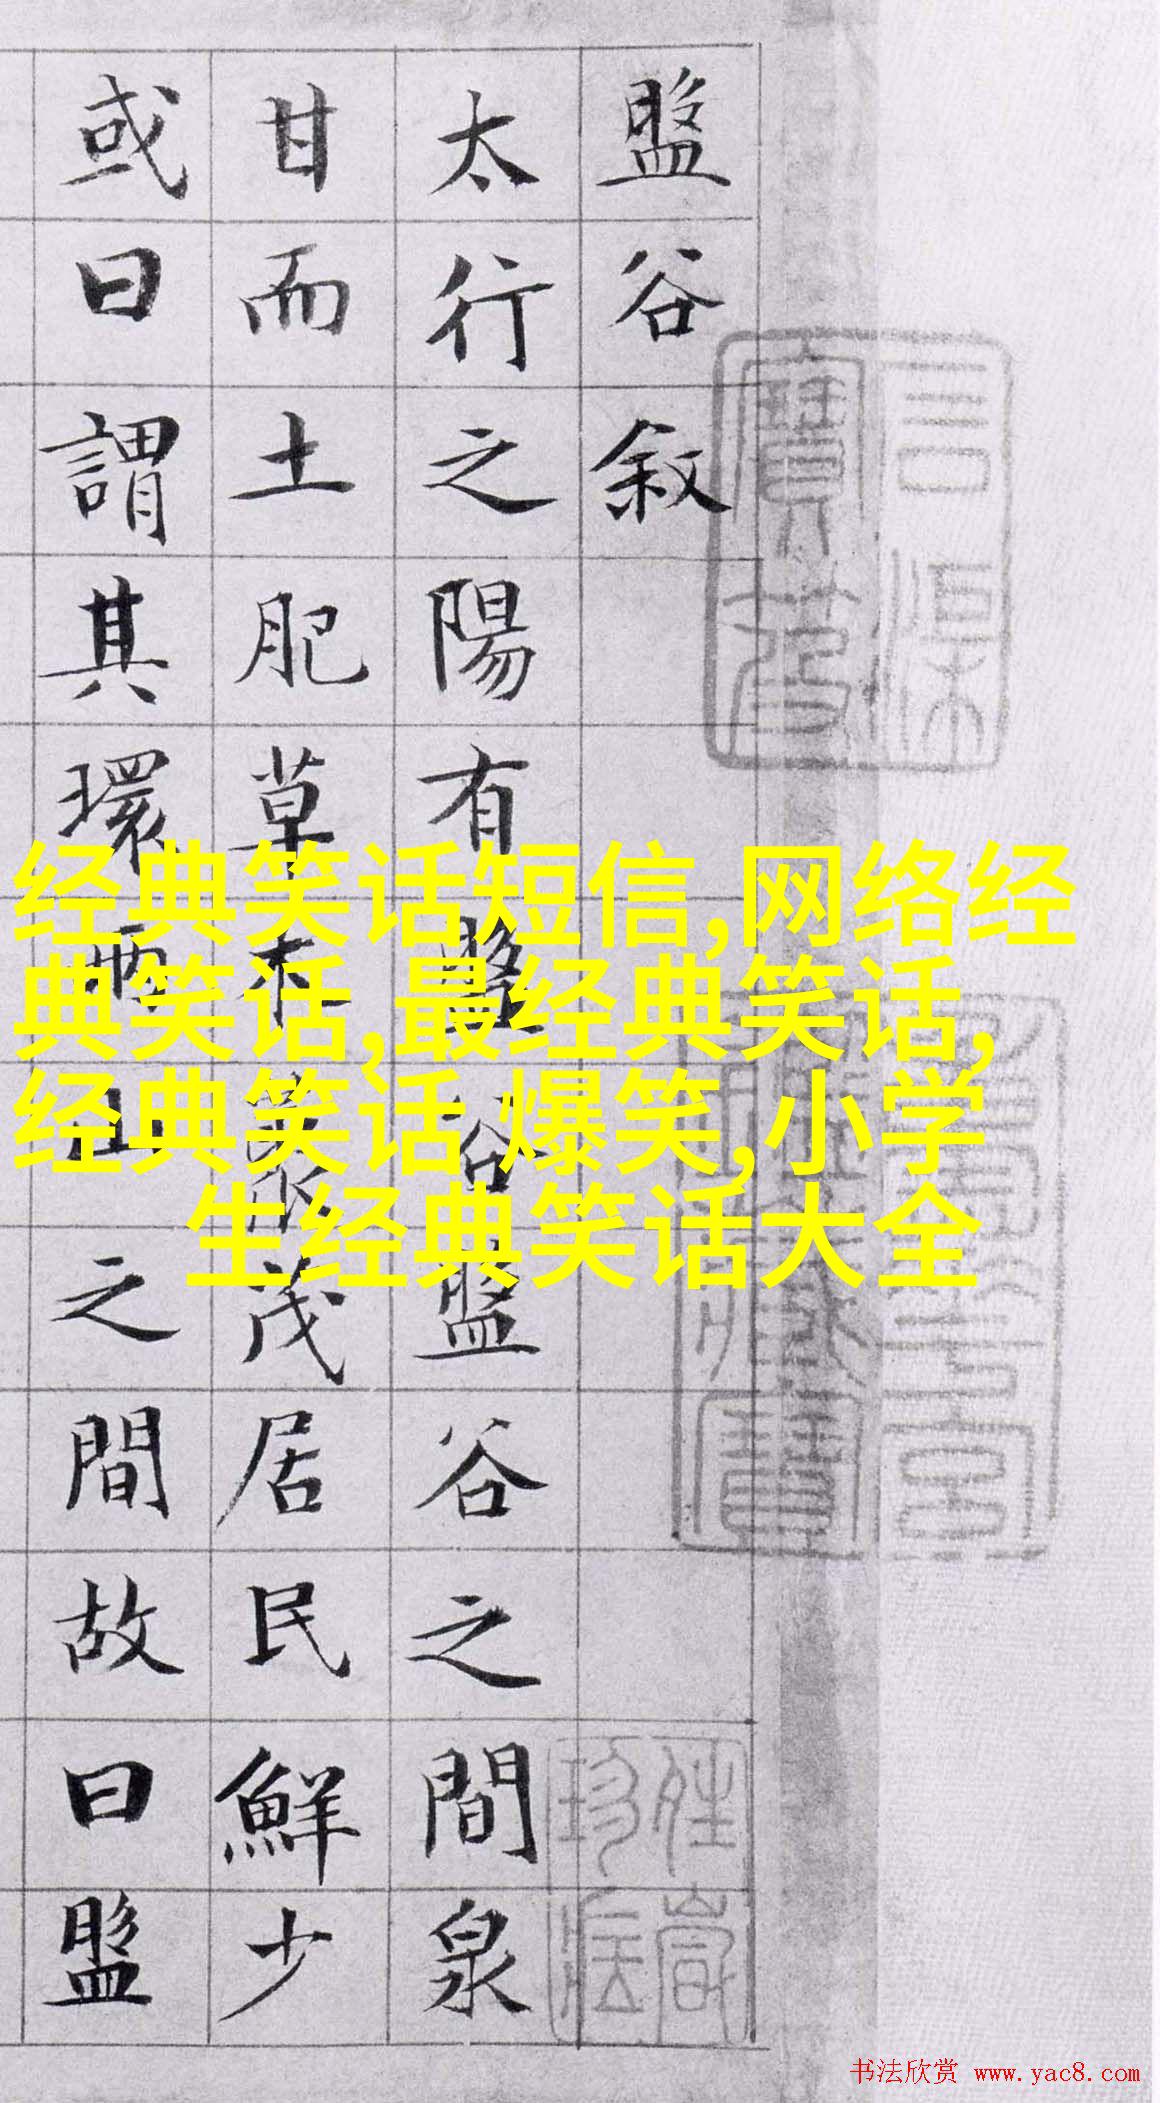 盤谷敘
太行之陽有盤谷盤谷之間泉
甘而土肥草木藂茂居民鮮少
或曰謂其環兩山之間故曰盤
经典笑话短信,网络经
典笑话,最经典笑话,
经典笑话 爆笑,小学
生经典笑话大全
书法欣赏 www.yac8.com